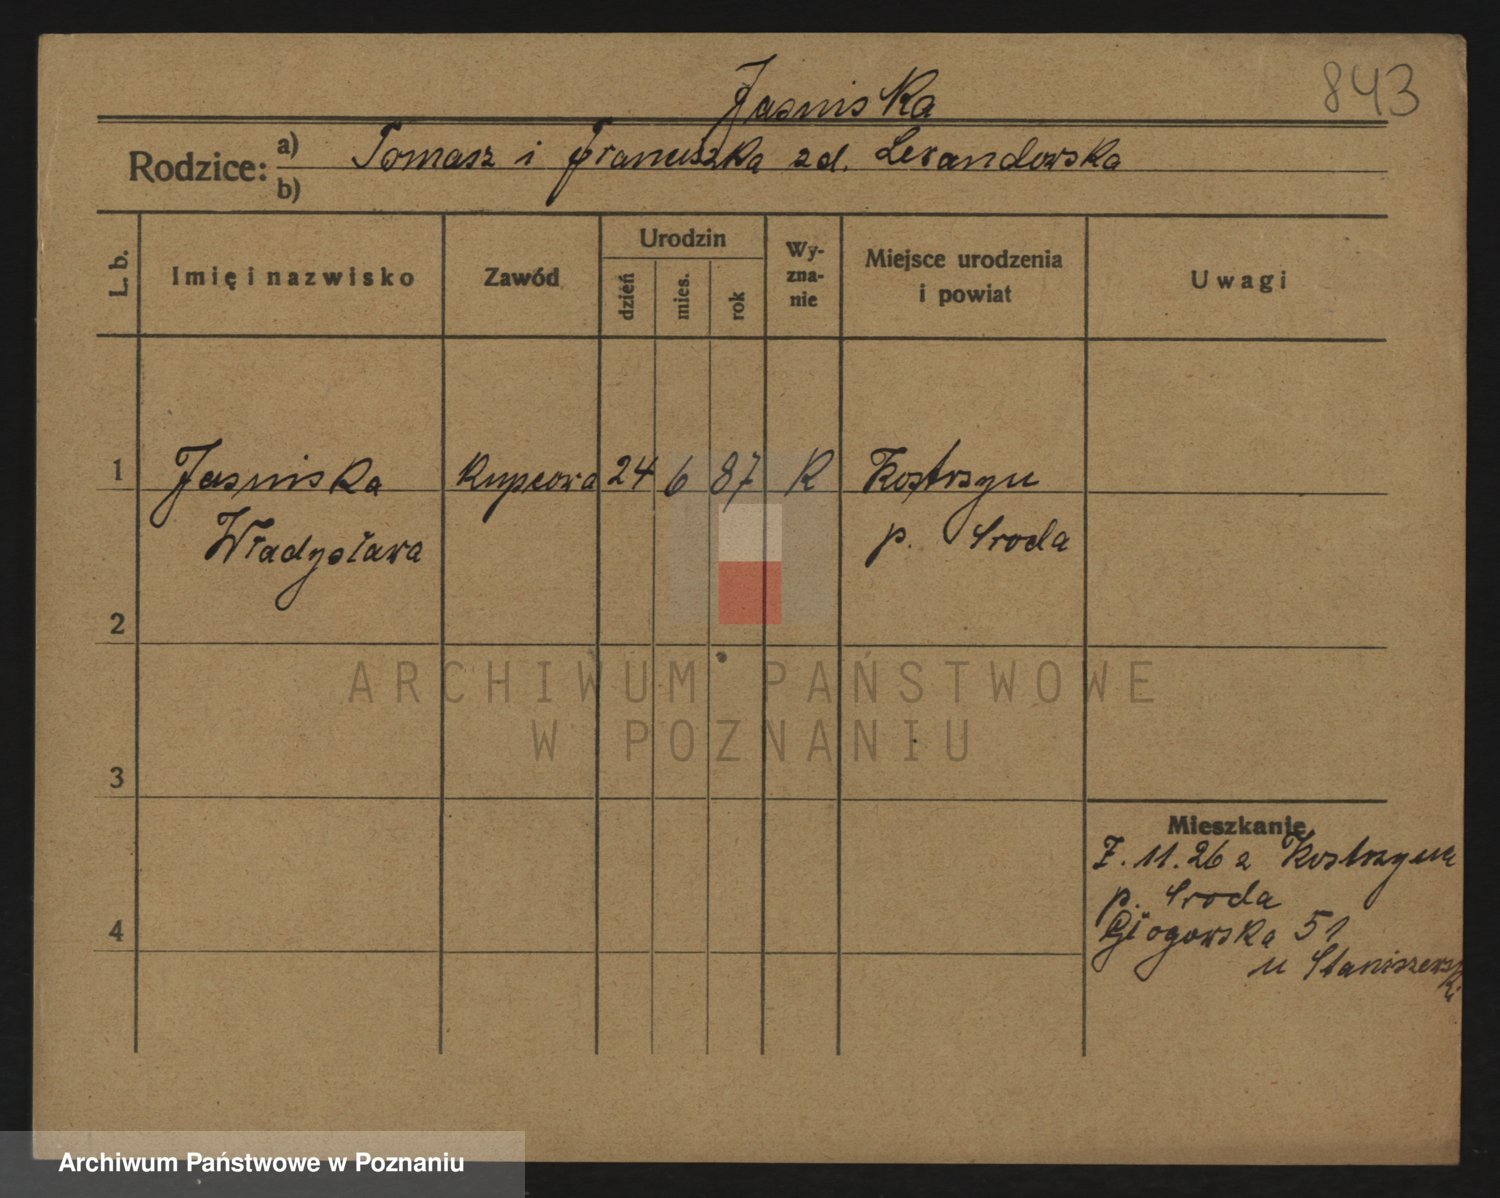 843
Jasniska
Rodzice:
a) Tomasz i Franciszka zd. Lewandowska
b)
L. b.
Imię i nazwisko
Zawód
Urodzin
dzień
mies.
rok
Wy-
zna-
nie
Miejsce urodzenia
i powiat
Uwagi
1 Jasniska kupcowa 24 6 87 K Kostrzyn
Władysława p. Sroda
2
3
4
ARCHIWUM PAŃSTWOWE
W POZNANIU
Mieszkanie
7.11.26 z Kostrzyna
p. Sroda
Głogowska 51
u Staniszewski
Archiwum Państwowe w Poznaniu